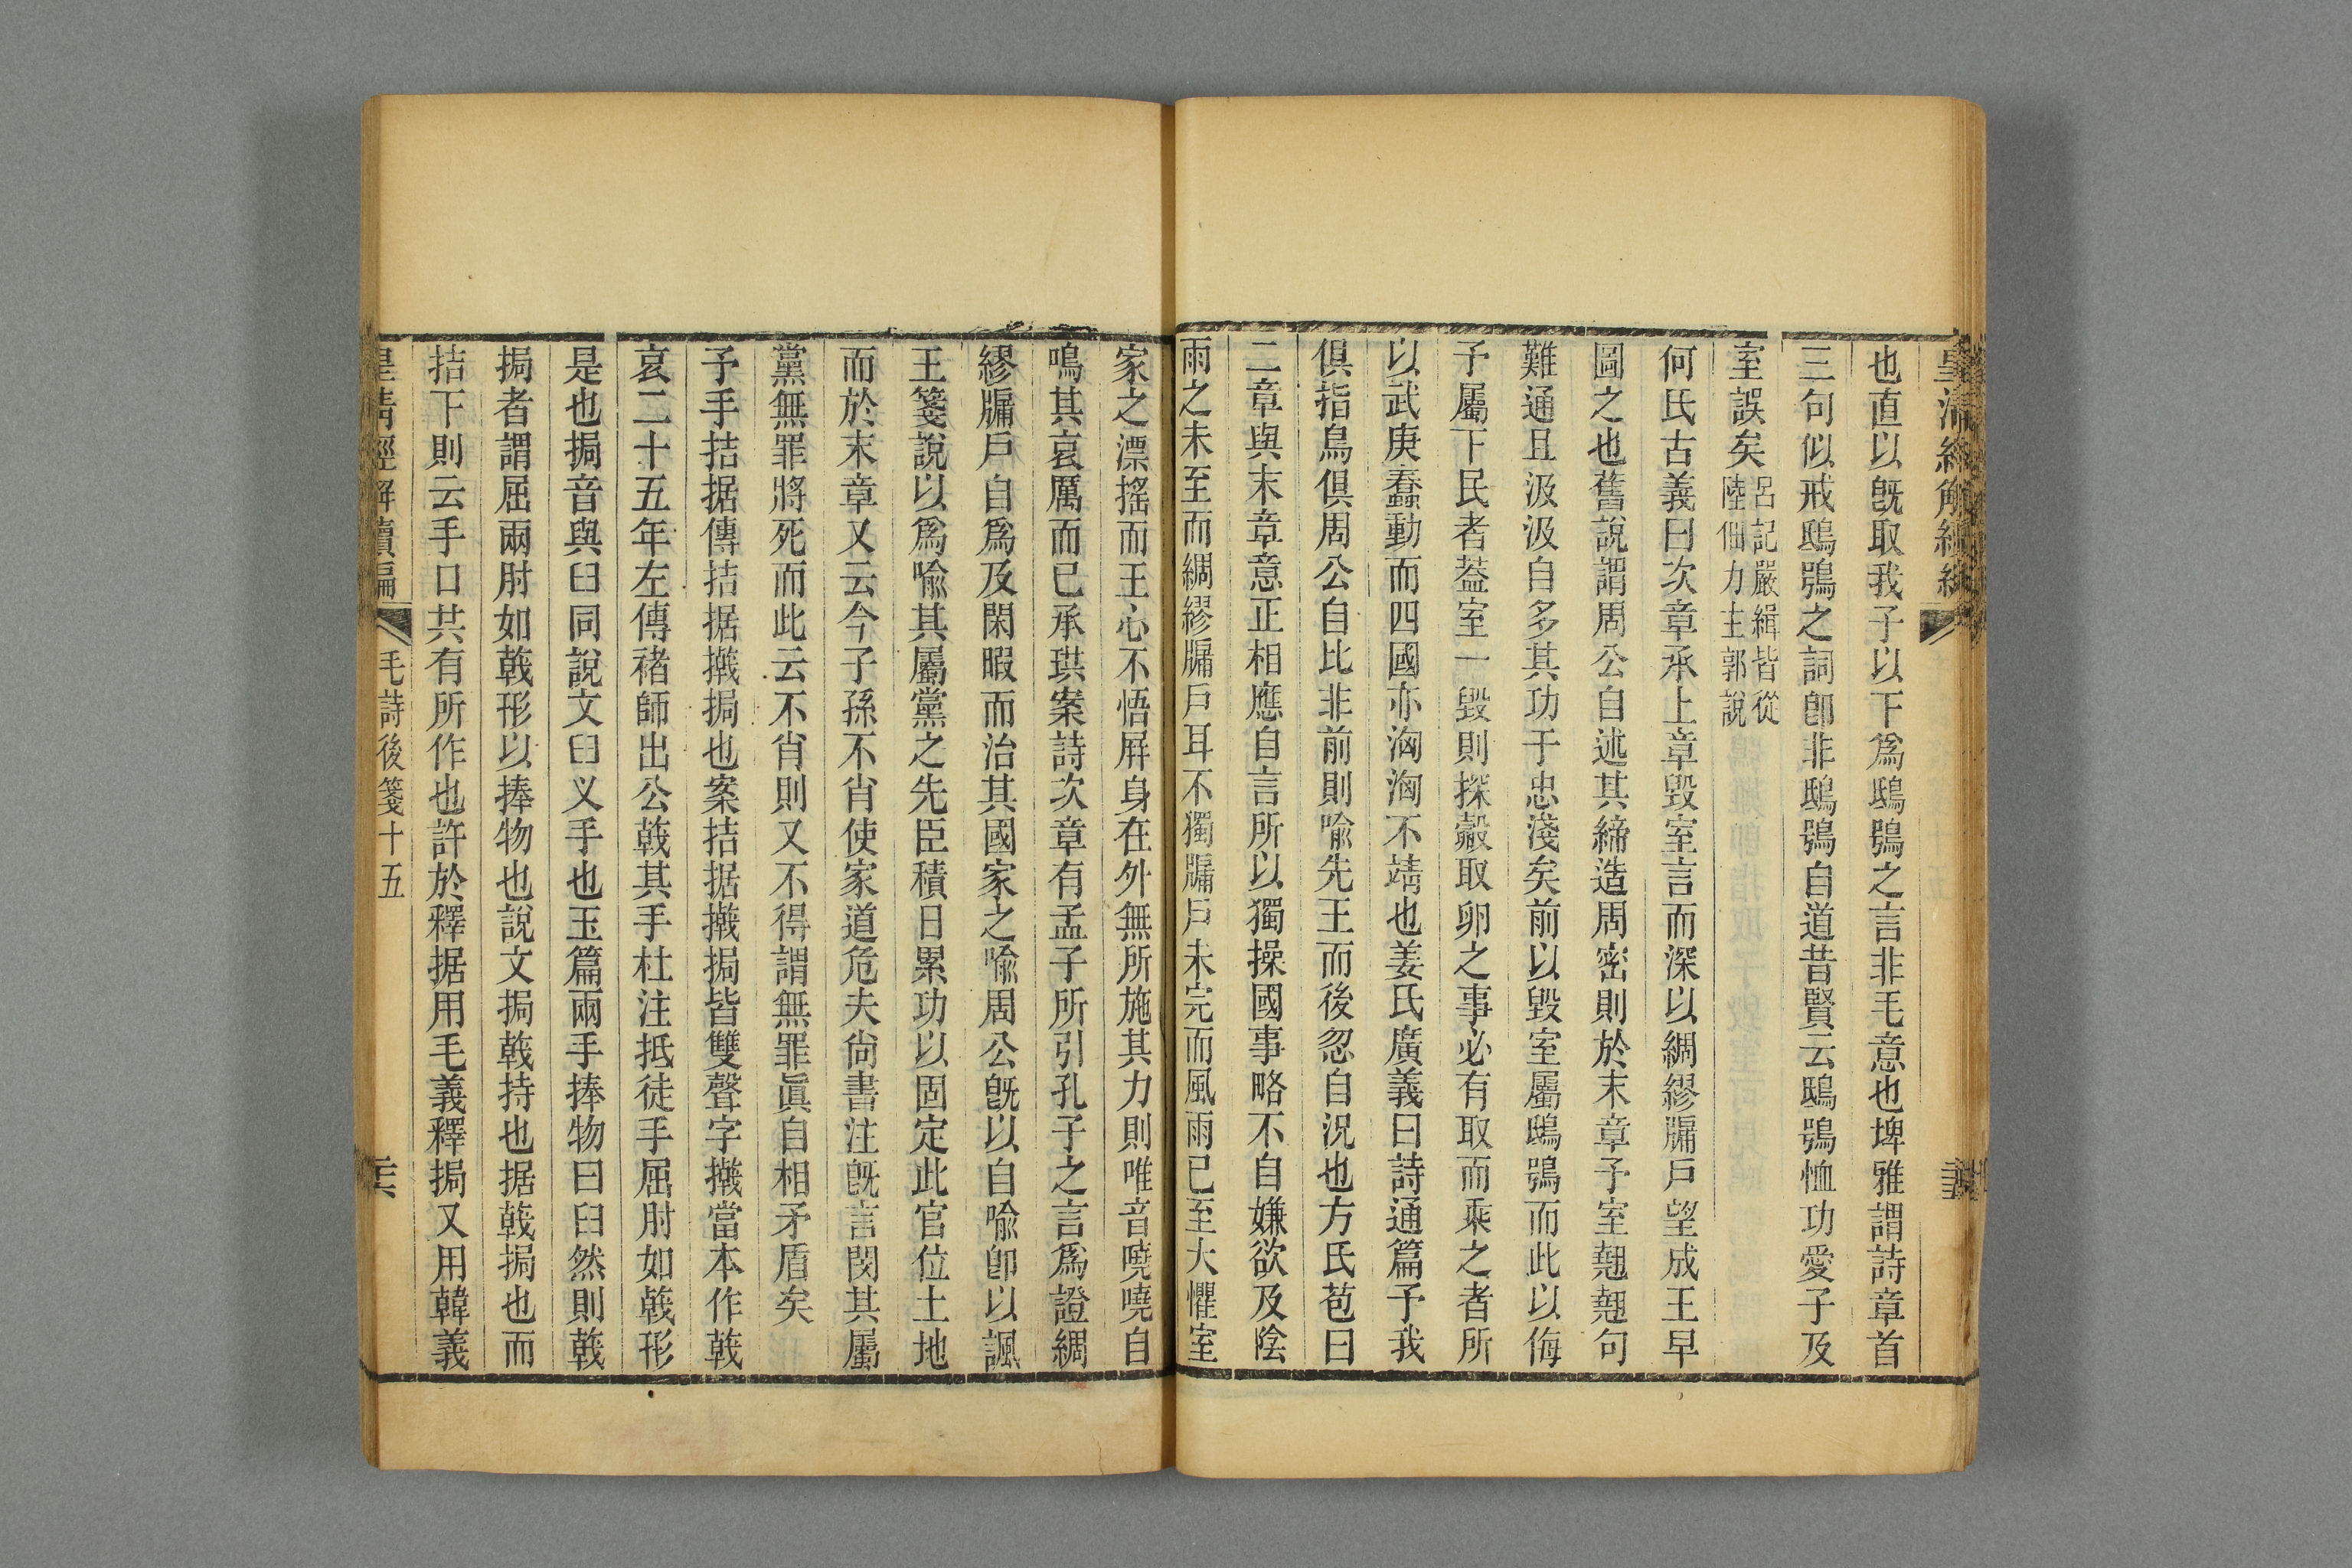 皇清經解續編
也直以旣取我子以下爲鴟鴞之言非毛意也埤雅謂詩章首
三句似戒鴟鴞之詞卽非鴟鴞自道昔賢云鴟鴞恤功愛子及
室誤矣呂記嚴緝皆從陸佃力主郭說
何氏古義曰次章承上章毀室言而深以綢繆牖戶望成王早
圖之也舊說謂周公自述其締造周密則於末章予室翹翹句
難通且汲汲自多其功于忠淺矣前以毀室屬鴟鴞而此以侮
予屬下民者葢室一毀則探鷇取卵之事必有取而乘之者所
以武庚蠢動而四國亦洶洶不靖也姜氏廣義曰詩通篇予我
俱指鳥俱周公自比非前則喩先王而後忽自況也方氏苞曰
二章與末章意正相應自言所以獨操國事略不自嫌欲及陰
雨之未至而綢繆牖戶耳不獨牖戶未完而風雨已至大懼室
家之漂搖而王心不悟屛身在外無所施其力則唯音嘵嘵自
鳴其哀厲而已承珙案詩次章有孟子所引孔子之言爲證綢
繆牖戶自爲及閑暇而治其國家之喩周公旣以自喩卽以諷
王箋說以爲喩其屬黨之先臣積日累功以固定此官位土地
而於末章又云今子孫不肖使家道危夫尙書注旣言閔其屬
黨無罪將死而此云不肖則又不得謂無罪眞自相矛盾矣
予手拮据傳拮据撠挶也案拮据撠挶皆雙聲字撠當本作戟
哀二十五年左傳褚師出公戟其手杜注抵徒手屈肘如戟形
是也挶音與臼同說文臼叉手也玉篇兩手捧物曰臼然則戟
挶者謂屈兩肘如戟形以捧物也說文挶戟持也据戟挶也而
拮下則云手口共有所作也許於釋据用毛義釋挶又用韓義
皇清經解續編 毛詩後箋十五